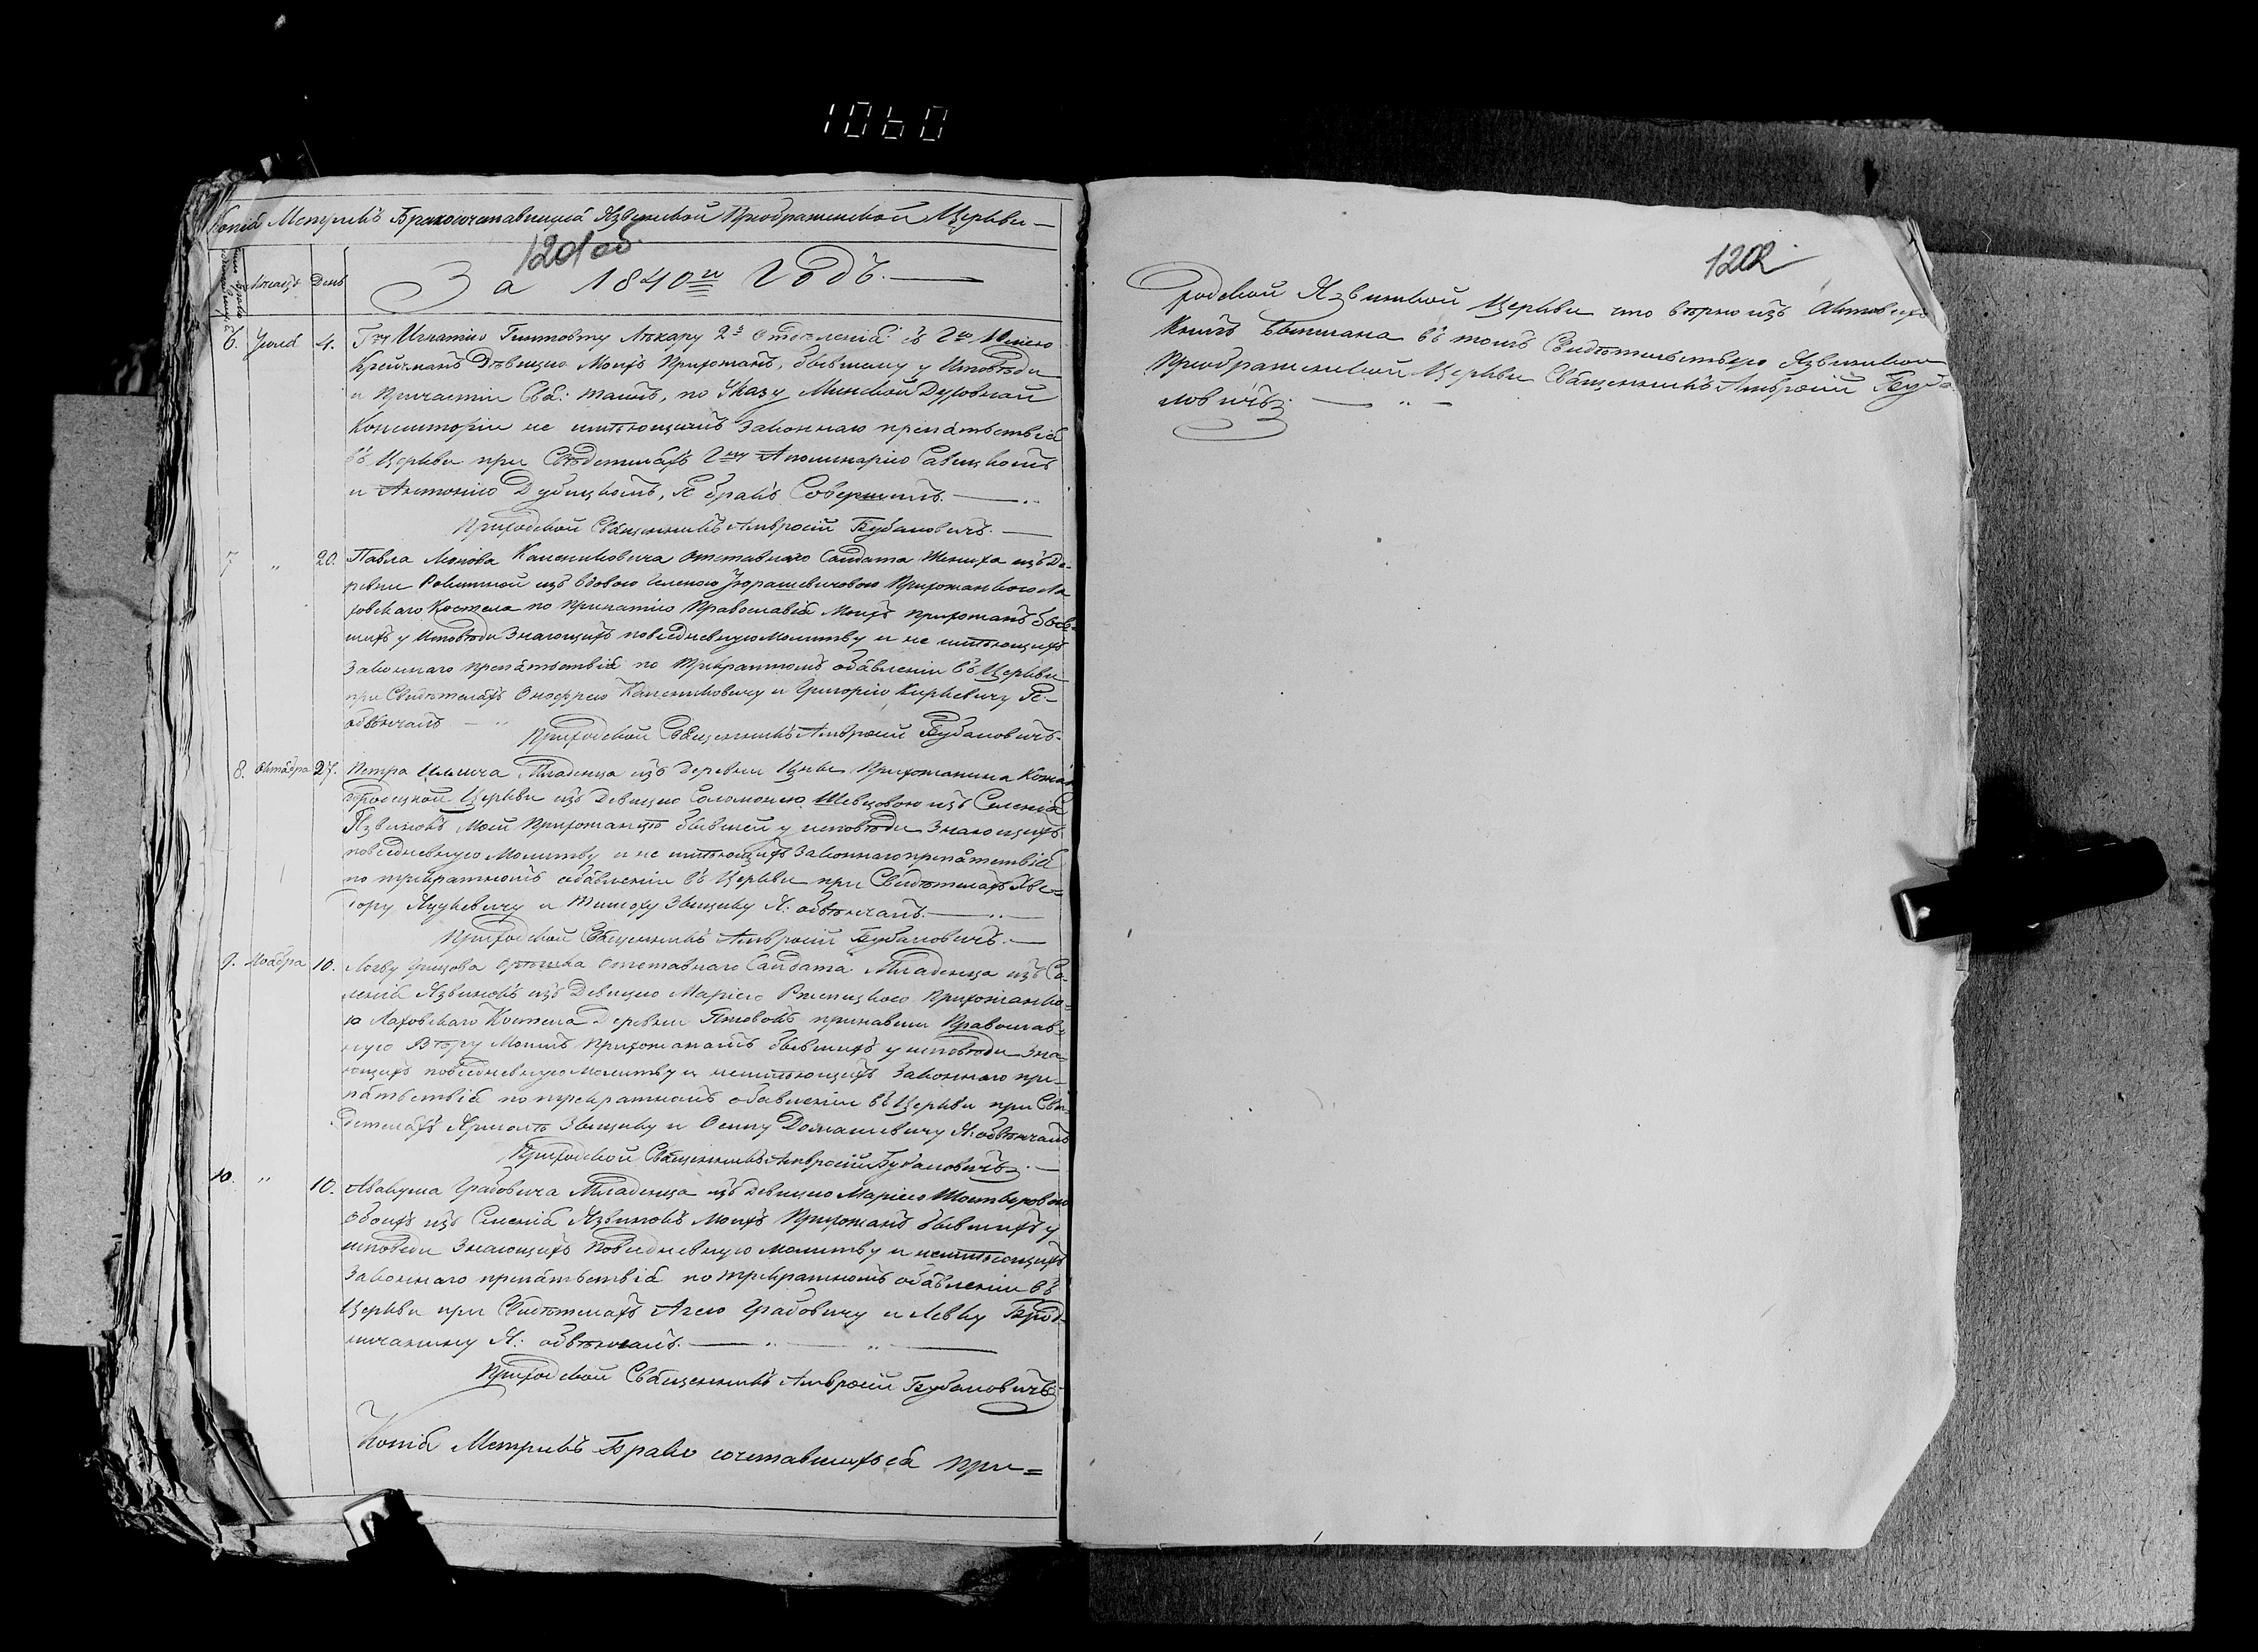 1060
Копіа Метрикъ Бракосочетавшихся Язвинской Преображенской Церкви —
1201 об.
Мѣсяцъ День
За 1840й Годъ. —
6. Іюля 4. Гну Игнатію Гинтовту Лѣкару 2го Отдѣленія съ Гею Юліею
Крейчманъ Дѣвицею Моихъ Прихожанъ, бывшему у Исповѣди
и Причастіи Свя: таинъ, по Указу Минской Духовной
Консисторіи не имѣющимъ Законнаго препятствія
въ Церкви при Свѣдетеляхъ Гну Аполинарію Савицкомъ
и Антонію Дубицкомъ, Я бракъ Совершилъ. —
Приходской Священникъ Амвросій Бубановичъ. —
7 " 20. Павла Монова Каменковича отставнаго Салдата Жениха изъ Де-
ревни изъ вдовою Еленою Прихожанкою Ла
ховскаго Костела по принятію Православія Моихъ прихожанъ быв-
шихъ у Исповѣди Знающихъ повседневную молитву и не имѣющихъ
Законнаго препятствія по трикратномъ обявленіи въ Церкви
при Свидѣтеляхъ Онофрею Каменковичу и Григорію Киркевичу Я-
обвѣнчалъ — "
Приходской Священникъ Амвросій Бубановичъ.
8. Октября 27. Петра Ильича Младенца изъ деревни Цны Прихожанина Кожан
городцкой Церкви изъ Девицею Соломоніею Шевцовою изъ Селенія
Язвинокъ Моей Прихожанцѣ бывшей у исповѣди Знающихъ
повседневную Молитву и не имѣющихъ Законнаго препятствія
по трикратномъ обявленіи въ Церкви при Свидѣтеляхъ Хве-
дору Яцукевичу и Тимоху Звицику Я: обвѣнчалъ. —
Приходской Священникъ Амвросій Бубановичъ. —
9. Ноября 10. Логву Грицова отставнаго Салдата Младенца изъ Се-
ленія Язвинокъ изъ Девицею Маріею Прихожанко-
ю Лаховскаго Костела Деревни принявши Православ-
ную Вѣру Моимъ Прихожанамъ бывшихъ у исповѣди Зна-
ющихъ повседневную молитву и неимѣющихъ Законнаго пре-
пятствія по трикратномъ обявленіи въ Церкви при Сви-
детеляхъ Звицику и Осипу Домашевичу Я: обвѣнчалъ
Приходской Священникъ Амвросій Бубановичъ. —
10. " 10. Авакума Грабовича Младенца изъ Девицею Маріею
Обоихъ изъ Селенія Язвинокъ Моихъ Прихожанъ бывшихъ у
исповеди Знающихъ Повседневную молитву и неимѣющихъ
Законнаго препятствія по трикратномъ обявленіи въ
Церкви при Свидѣтеляхъ Агею Грабовичу и Левку Брод-
ничанину Я: обвѣнчалъ. —
Приходской Священникъ Амвросій Бубановичъ
Копіа Метрикъ Брако сочетавшихъся при=
1202
ходской Язвинской Церкви что вѣрно изъ
Книгъ выписана въ томъ Свидѣтельствую Язвинской
Преображенской Церкви Священникъ Амвросій Буба
новичъ. —